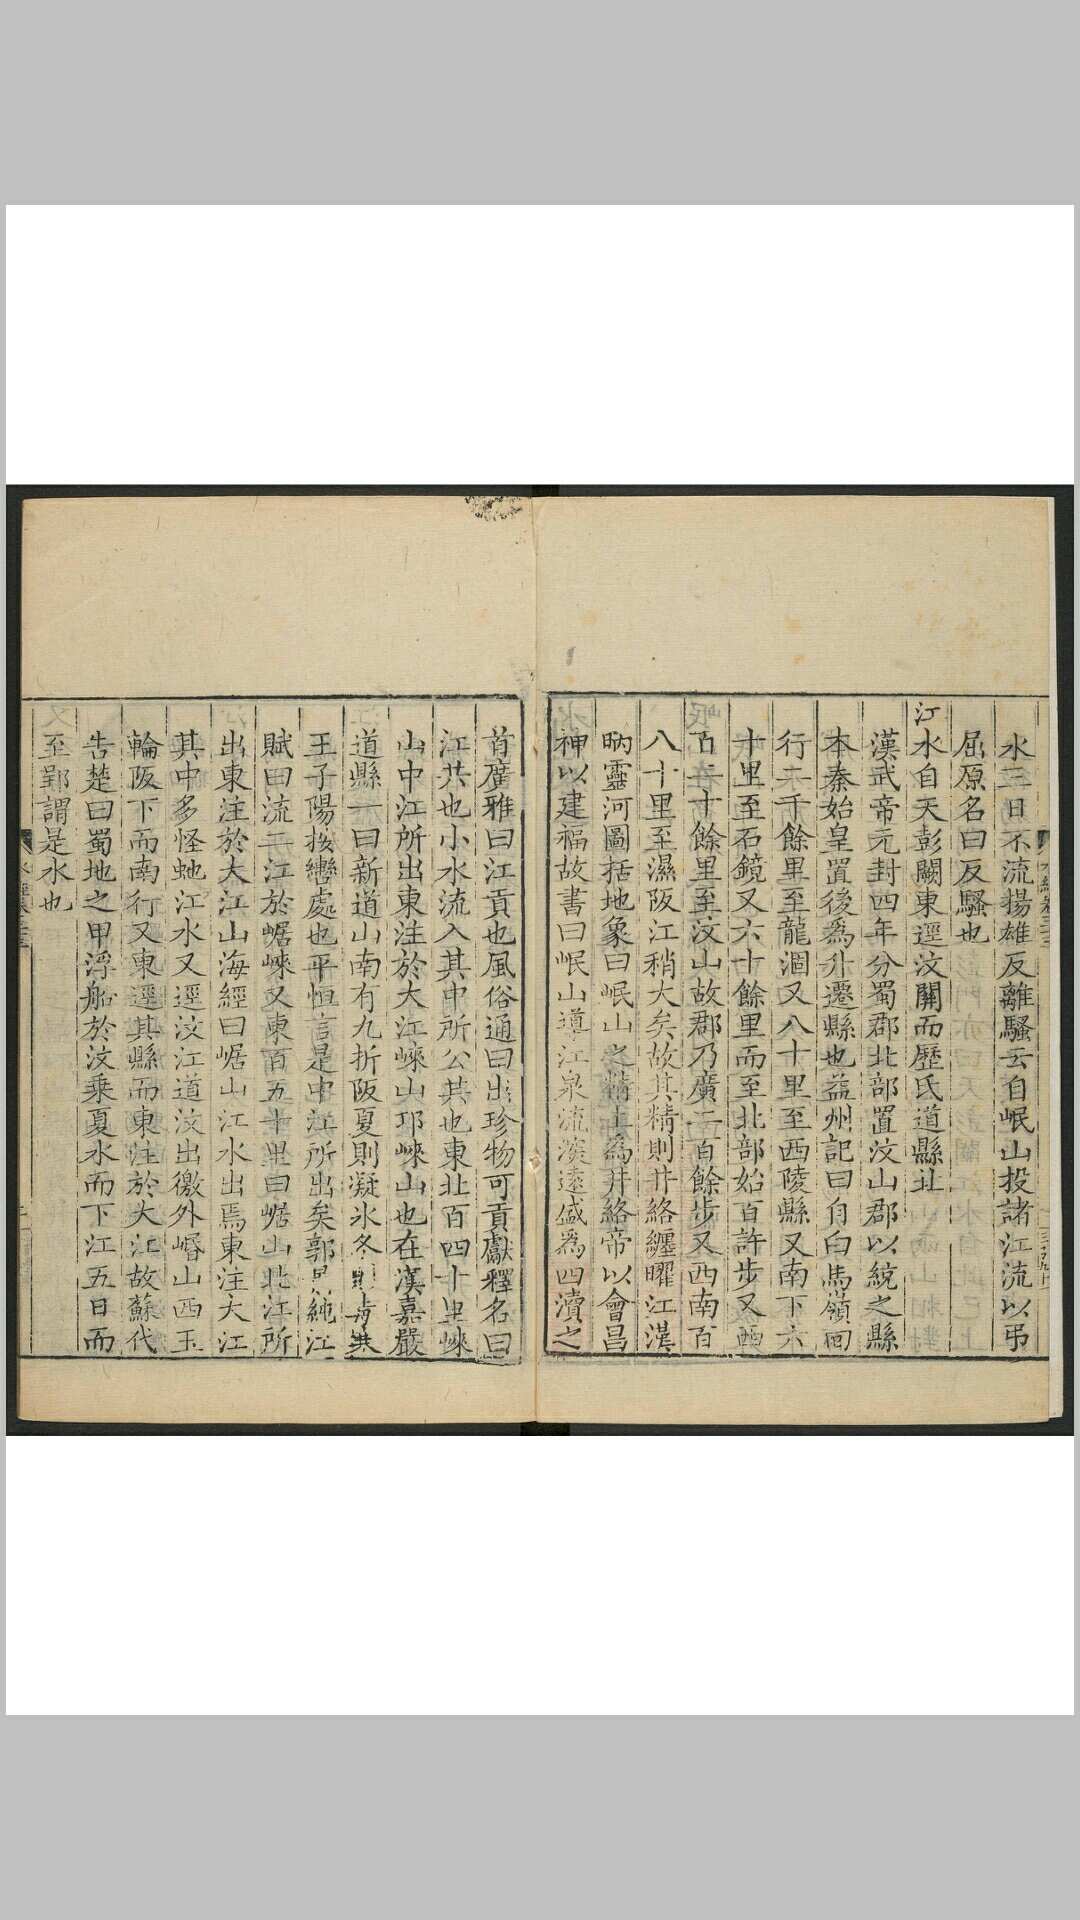 水三日不流揚雄反離騷云自岷山投諸江流以弔
屈原名曰反騷也
江水自天彭闕東逕汶關而歷氐道縣北
漢武帝元封四年分蜀郡北部置汶山郡以統之縣
本秦始皇置後為升遷縣也益州記曰自白馬嶺回
行二十餘里至龍涸又八十里至西陵縣又南下六
十里至石鏡又六十餘里而至北部始百許步又西
百二十餘里至汶山故郡乃廣二百餘步又西南百
八十里至濕阪江稍大矣故其精則井絡纏曜江漢
昞靈河圖括地象曰岷山之精上為井絡帝以會昌
神以建福故書曰岷山導江泉流深遠盛為四瀆之
首廣雅曰江貢也風俗通曰出珍物可貢獻釋名曰
江共也小水流入其中所公共也東北百四十里崍
山中江所出東注於大江崍山邛崍山也在漢嘉嚴
道縣一曰新道山南有九折阪夏則凝冰冬
王子陽按轡處也平恒言是中江所出矣郭景純江
賦曰流二江於崌崍又東百五十里曰崌山北江所
出東注於大江山海經曰崌山江水出焉東注大江
其中多怪虵江水又逕汶江道汶出徼外㟭山西玉
輪阪下而南行又東逕其縣而東注於大江故蘇代
告楚曰蜀地之甲浮船於汶乘夏水而下江五日而
至郢謂是水也